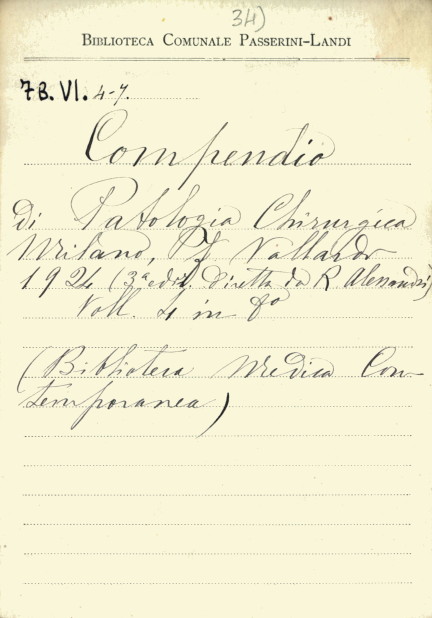 34)
BIBLIOTECA COMUNALE PASSERINI-LANDI
7B. VI. 4-7.
Compendio
di Patologia Chirurgica
Milano, F. Vallardi
1924 (3ª ediz. diretta da R. Alessandri)
Voll. 4 in 8º
(Biblioteca Medica Con-
temporanea)